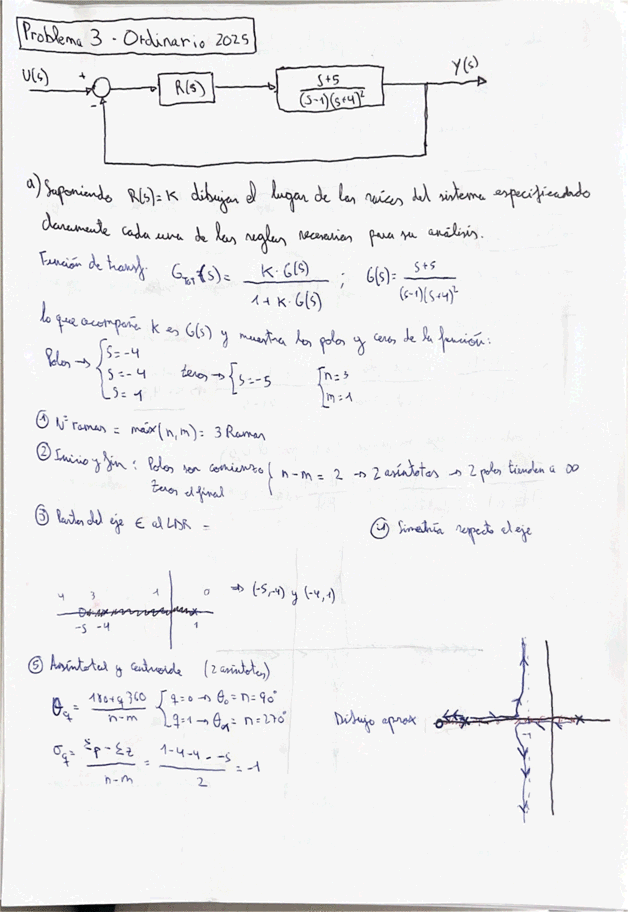 Problema 3 - Ordinario 2025
U(s) + - R(s) s+5 / (s-1)(s+4)² Y(s)
a) Suponiendo R(s)=K dibujar el lugar de las raíces del sistema especificadado
claramente cada una de las reglas necesarias para su análisis.
Función de transf. G_TOT(s) = K·G(s) / 1+K·G(s) ; G(s) = s+5 / (s-1)(s+4)²
lo que acompaña K es G(s) y muestra los polos y ceros de la función:
Polos → { s=-4 s=-4 s=1 Zeros → { s=-5 { n=3 m=1
① Nº ramas = máx(n,m) = 3 Ramas
② Inicio y fin: Polos son comienzo Zeros el final { n-m = 2 → 2 asíntotas → 2 polos tienden a ∞
③ Partes del eje ∈ al LDR =
④ Simetría respecto el eje
4 3 1 0
-5 -4 1
⇒ (-5,-4) y (-4,1)
⑤ Asíntotas y centroide (2 asíntotas)
θq = 180+q360 / n-m { q=0 → θ₀ = n=90° q=1 → θ₁ = n=270°
Dibujo aprox
σq = Σp - Σz / n-m = 1-4-4--5 / 2 = -1